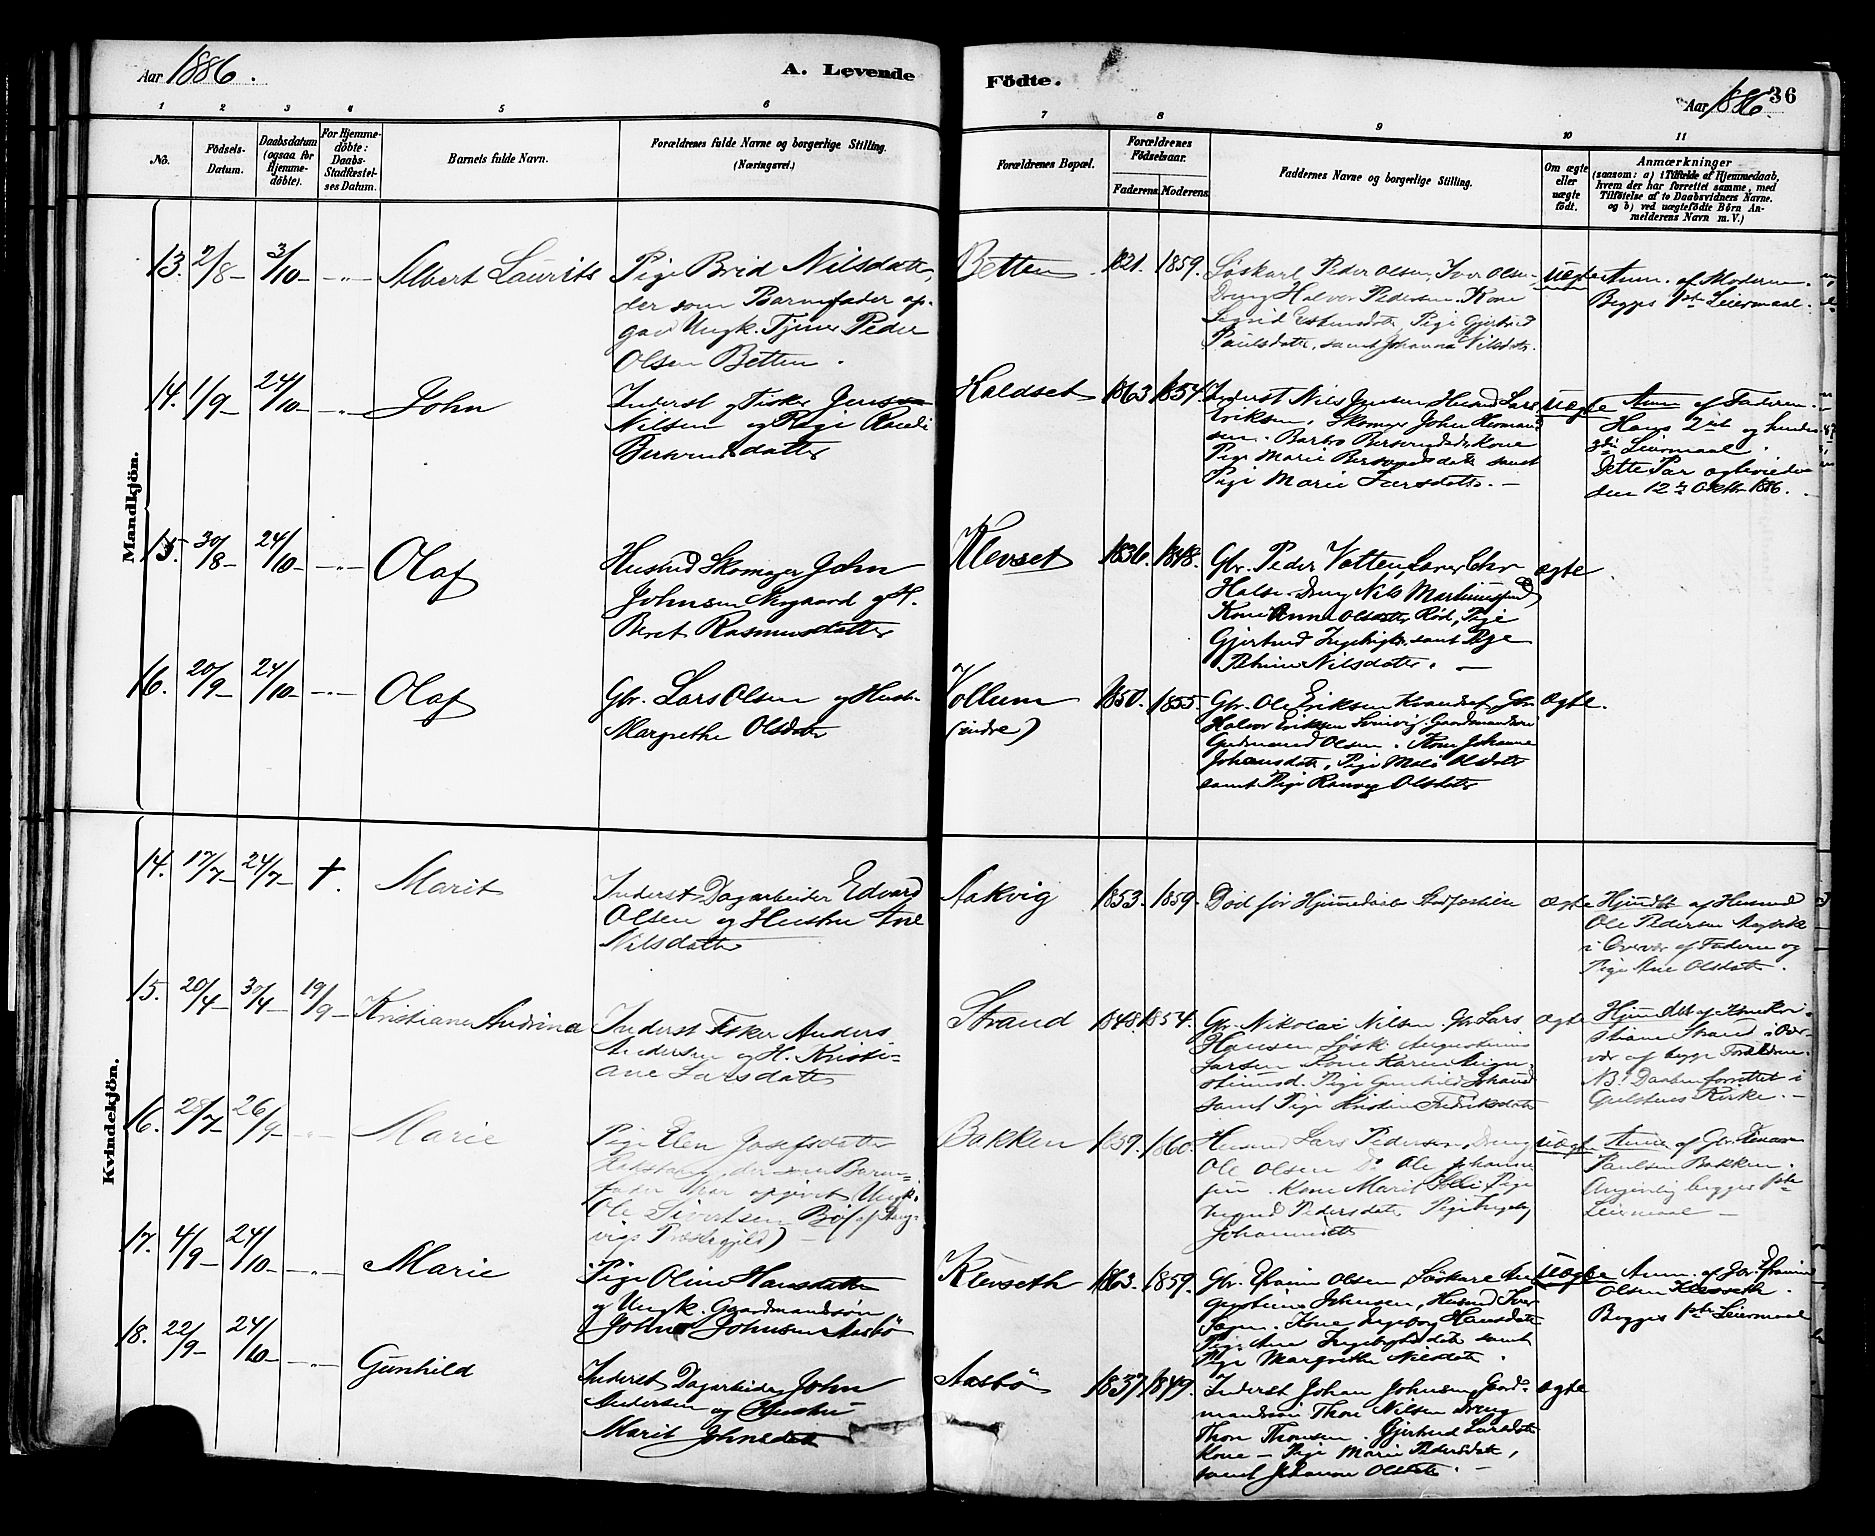 Aar 1886.
A. Levende
Födte.
Aar 1886.
36
1 2 3 4 5 6
7 8 9 10 11
No.
Födsels-
Datum.
Daabsdatum
(ogsaa for
Hjemme-
døbte).
For Hjemme-
døbte:
Daabs-
Stadfæstel-
ses Datum.
Barnets fulde Navn.
Forældrenes fulde Navne og borgerlige Stilling.
(Næringsvei.)
Forældrenes Bopæl.
Forældrenes
Födselsaar.
Faderens.
Moderens.
Faddernes Navne og borgerlige Stilling.
Om ægte
eller
uægte
født.
Anmærkninger
(saasom: a) i Tilfælde af Hjemmedaab,
hvem der har forrettet samme, med
Tilföielse af to Daabsvidners Navne.
og b) ved uægtefödte Börn An-
melderens Navn m. V.)
Mandkjön.
13. 2/8 3/10 Albert Laurits
Pige Brid Nilsdatter,
der som Barnefader op-
gav Ungk. Tjener Peder
Olsen Betten.
Betten 1821. 1859.
Söskarl Peder Olsen, Iver Olsen
Dreng Halvor Pedersen. Kone
Pige Gjertrud
Paulsdatter, samt Johanna Nilsdatter.
uægte
Anm. af Moderen.
Begges 1ste Leiermaal.
14. 1/9 24/10 John
Inderst og Fisker Jens
Nilsen og Pige Randi
Bersvendsdatter
Haldset 1863 1854
Inderst Nils Jensen Husmd Lars
Eriksen, Skomager John Herman
sen. Barbro Bersvendsdtr Kone
Pige Marie Bersvendsdatter samt
Pige Marie Larsdatter.
uægte
Anm. af Faderen.
Hans 2det og hendes
3die Leiermaal.
Dette Par egteviedes
den 12te Oktbr 1886.
15. 30/8 24/10 Olaf
Husmd Skomager John
Johnsen Nergaard og H.
Beret Rasmusdatter
Klevset 1836. 1848.
Gbr. Peder Vatten, Lærer Chr
Halse Dreng Nils Martinussen
Kone Anne Olsdatter Rød, Pige
Gjertrud Ingebrigtsdtr samt Pige
Nilsdatter.
ægte
16. 20/9 24/10 Olaf
Gbr. Lars Olsen og Hustr.
Margrethe Olsdatter
Vollum
(indre)
1850. 1855.
Gbr. Ole Eriksen Gbr
Halvor Eriksen Gaardmandssön
Gudmund Olsen. Kone Johanne
Johansdatter, Pige Olsdatter
samt Pige Ranveg Olsdatter
ægte.
Kvindekjön.
14. 17/7 24/7 †. Marit
Inderst Dagarbeider Edvard
Olsen og Hustru Ane
Nilsdatter
Aakvig 1853. 1859.
Död för Hjemmedaabs Stadfæstelse
ægte
Hjmdbt af Husmd
Ole Pedersen
i Overvær af Faderen og
Pige Ane Olsdatter.
15. 20/4 30/4 19/9 Kristiane Andrina
Inderst Fisker Anders
Andersen og H. Kristi-
ane Larsdatter
Strand 1848. 1854.
Gbr. Nikolai Nilsen, Gbr Lars
Hansen, Sösk. Augustinus
Larsen Kone Karen Augu-
stinusd. Pige Gunhild Johansd
samt Pige Kristine Fredriksdatter
ægte
Hjmdbt af Enke Kri-
stiane Strand i Over-
vær af begge Forældrene.
NB! Daaben forrettet i
Kirke.
16. 28/7 26/9 Marie
Pige Elen Josefsdatter
der som Barne-
fader har opgivet Ungk.
Ole Sivertsen Böf (af
vigs Præstegjeld)
Bakken 1859. 1860.
Husmd Lars Pedersen, Dreng
Ole Olsen Do Ole Johanne-
sen. Kone Marit Pige
Pedersdatter Pige Ingeborg
Johannesdtr
uægte
Anm. af Gbr. Einar
Paulsen Bakken.
Angivelig begges 1ste
Leiermaal
17. 4/9 24/10 Marie
Pige Oline Hansdatter
og Ungk. Gaardmandssön
John Johnsen Aasbö
Klevseth 1863. 1859.
Gbr. Efraim Olsen, Söskare Au-
gustinus Johnsen, Husmd Iver
Kone Ingeborg Hansdatter
Pige Ane Ingebrigtsdatter samt
Pige Margrethe Nilsdatter.
uægte
Anm. af Gbr. Efraim
Olsen Klevseth.
Begges 1ste Leiermaal
18. 22/9 24/10 Gunhild
Inderst Dagarbeider John
Andersen og Hustru
Marit Johnsdatter
Aasbö 1837. 1849.
Inderst Johan Johnsen, Gaard-
mandssön Thore Nilsen Dreng
Thore Thoresen. Gjertrud Larsdatter
Kone — Pige Marie Pedersdatter,
samt Johanna Olsdatter.
ægte